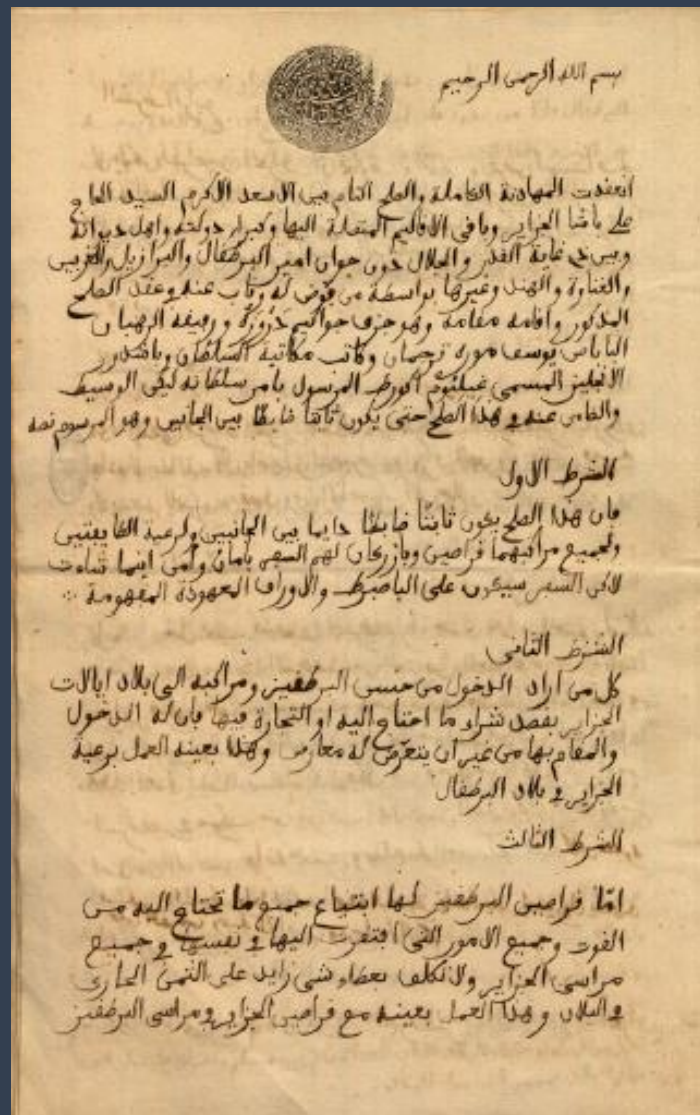 بسم الله الرحمن الرحيم
انعقدت المهادنة الكاملة والصلح التام بين الاسعد الاكرم السيد الحاج
علي باشا الجزاير وباقي الاقاليم المتصلة اليها وكبراء دولته واهل ديوانه
وبين ذي غاية القدر والجلال دون جوان امير البرطقال والبرازيل والغربين
والهند وغيرها بواسطة من فوض له وناب عنه في عقد الصلح
المذكور واقامه مقامه وهو جزي جواكيم ورفيقه الرهبان
الباباس يوسف موره ترجمان وكاتب مكاتبة السلطان وبانبدور
الانجليز المسمى المرسول بامر سلطانه ليكن الوسيط
والضامن عنه في هذا الصلح حتى يكون ثابتا ضابطا بين الجانبين وهو المرسوم نصه
الشرط الاول
فان هذا الصلح يكون ثابتا ضابطا دايما بين الجانبين ولرعية الطايفتين
ولجميع مراكبهما قراصين وبازركان لهم السفر بامان وامن اينما شاءت
لاكن السفر سيكون على الباصبرط والاوراق المعهودة المفهومة
الشرط الثاني
كل من اراد الدخول من جنس البرطقيز ومراكبه الى بلاد ايالات
الجزاير بقصد شراء ما احتاج اليه او التجارة فيها فان له الدخول
والمقام بها من غير ان يتعرض له معارض وهذا بعينه العمل برعية
الجزاير في بلاد البرطقال
الشرط الثالث
امّا قراصين البرطقيز لها ابتياع جميع ما تحتاج اليه من
القوت وجميع الامور التي افتقرت اليها في نفسها في جميع
مراسي الجزاير ولا تكلف بعطاء شي زايد على الثمن الجاري
في البلاد وهذا العمل بعينه مع قراصين الجزاير في مراسي البرطقيز